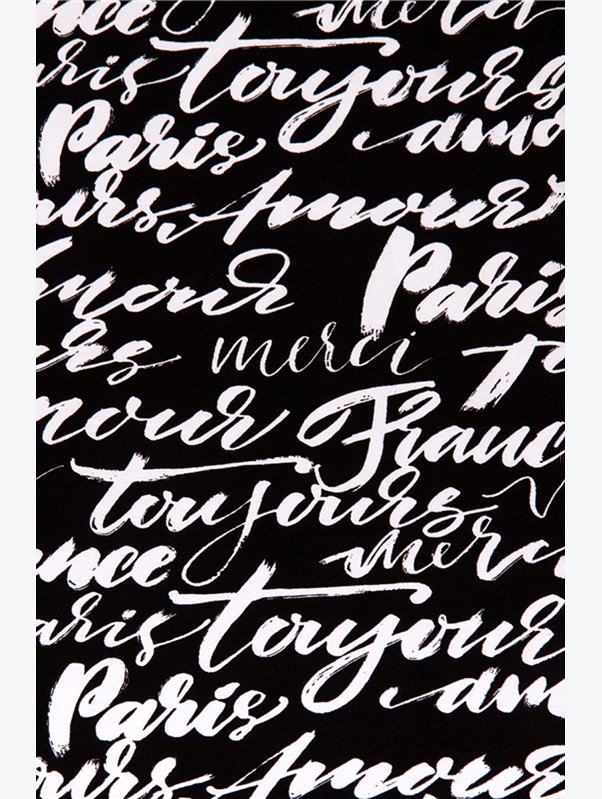 nce merci
ris toujours
Paris amo
urs Amour
mour Paris
rs merci To
mour Franc
toujours
nce merci
aris toujour
Paris am
urs Amour